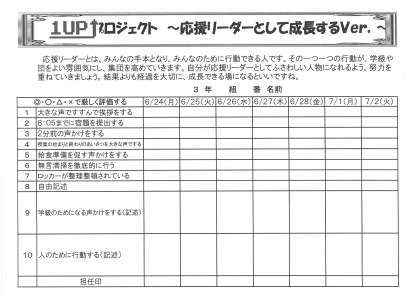 1UP プロジェクト ～応援リーダーとして成長するVer.～
応援リーダーとは、みんなの手本となり、みんなのために行動できる人です。その一つ一つの行動が、学級や
団をよい雰囲気にし、集団を高めていきます。自分が応援リーダーとしてふさわしい人物になれるよう、努力を
重ねていきましょう。結果よりも経過を大切に、成長できる場になるといいですね。
3 年 組 番 名前
◎・○・△・×で厳しく評価する 6/24(月) 6/25(火) 6/26(水) 6/27(木) 6/28(金) 7/1(月) 7/2(火)
1 大きな声ですすんで挨拶をする
2 8:05までに宿題を提出する
3 2分前の声かけをする
4 授業の始まりと終わりのあいさつを大きな声でする
5 給食準備を促す声かけをする
6 無言清掃を徹底的に行う
7 ロッカーが整理整頓されている
8 自由記述
9 学級のためになる声かけをする(記述)
10 人のために行動する(記述)
担任印